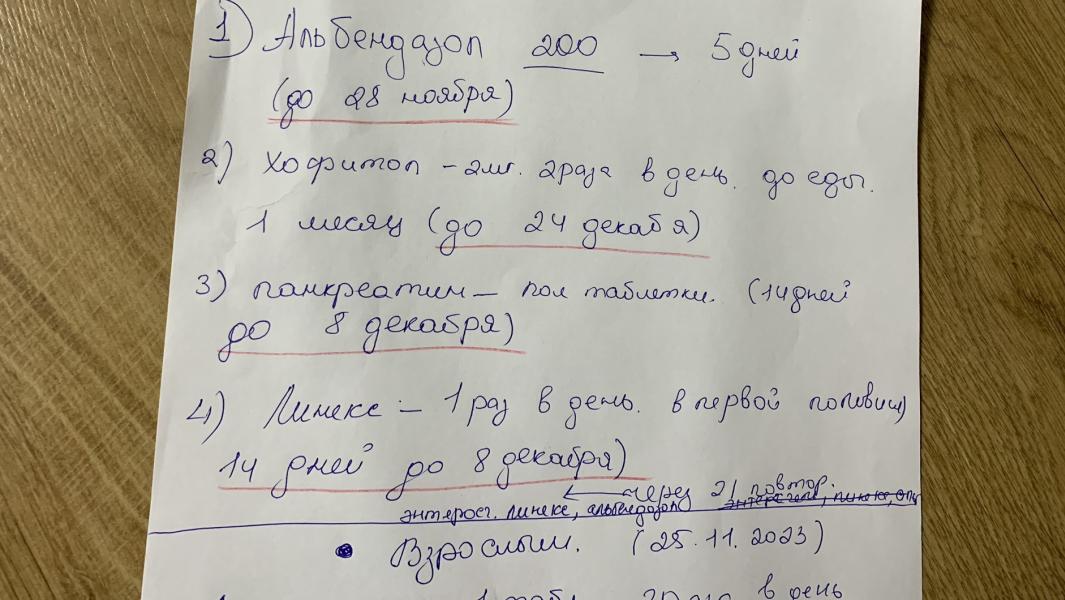 1) Альбендазол 200 → 5 дней
(до 28 ноября)
2) Хофитол – 2мг. 2 раза в день. до еды.
1 месяц (до 24 декабя)
3) панкреатин – пол таблетки. (14 дней
до 8 декабря)
4) Линекс – 1 раз в день. в первой половин)
14 дней до 8 декабря)
← через 21 повтор.
энтеросг. линекс, альбендазол
• Взрослым. (25.11.2023)
1 табл 2 раза в день